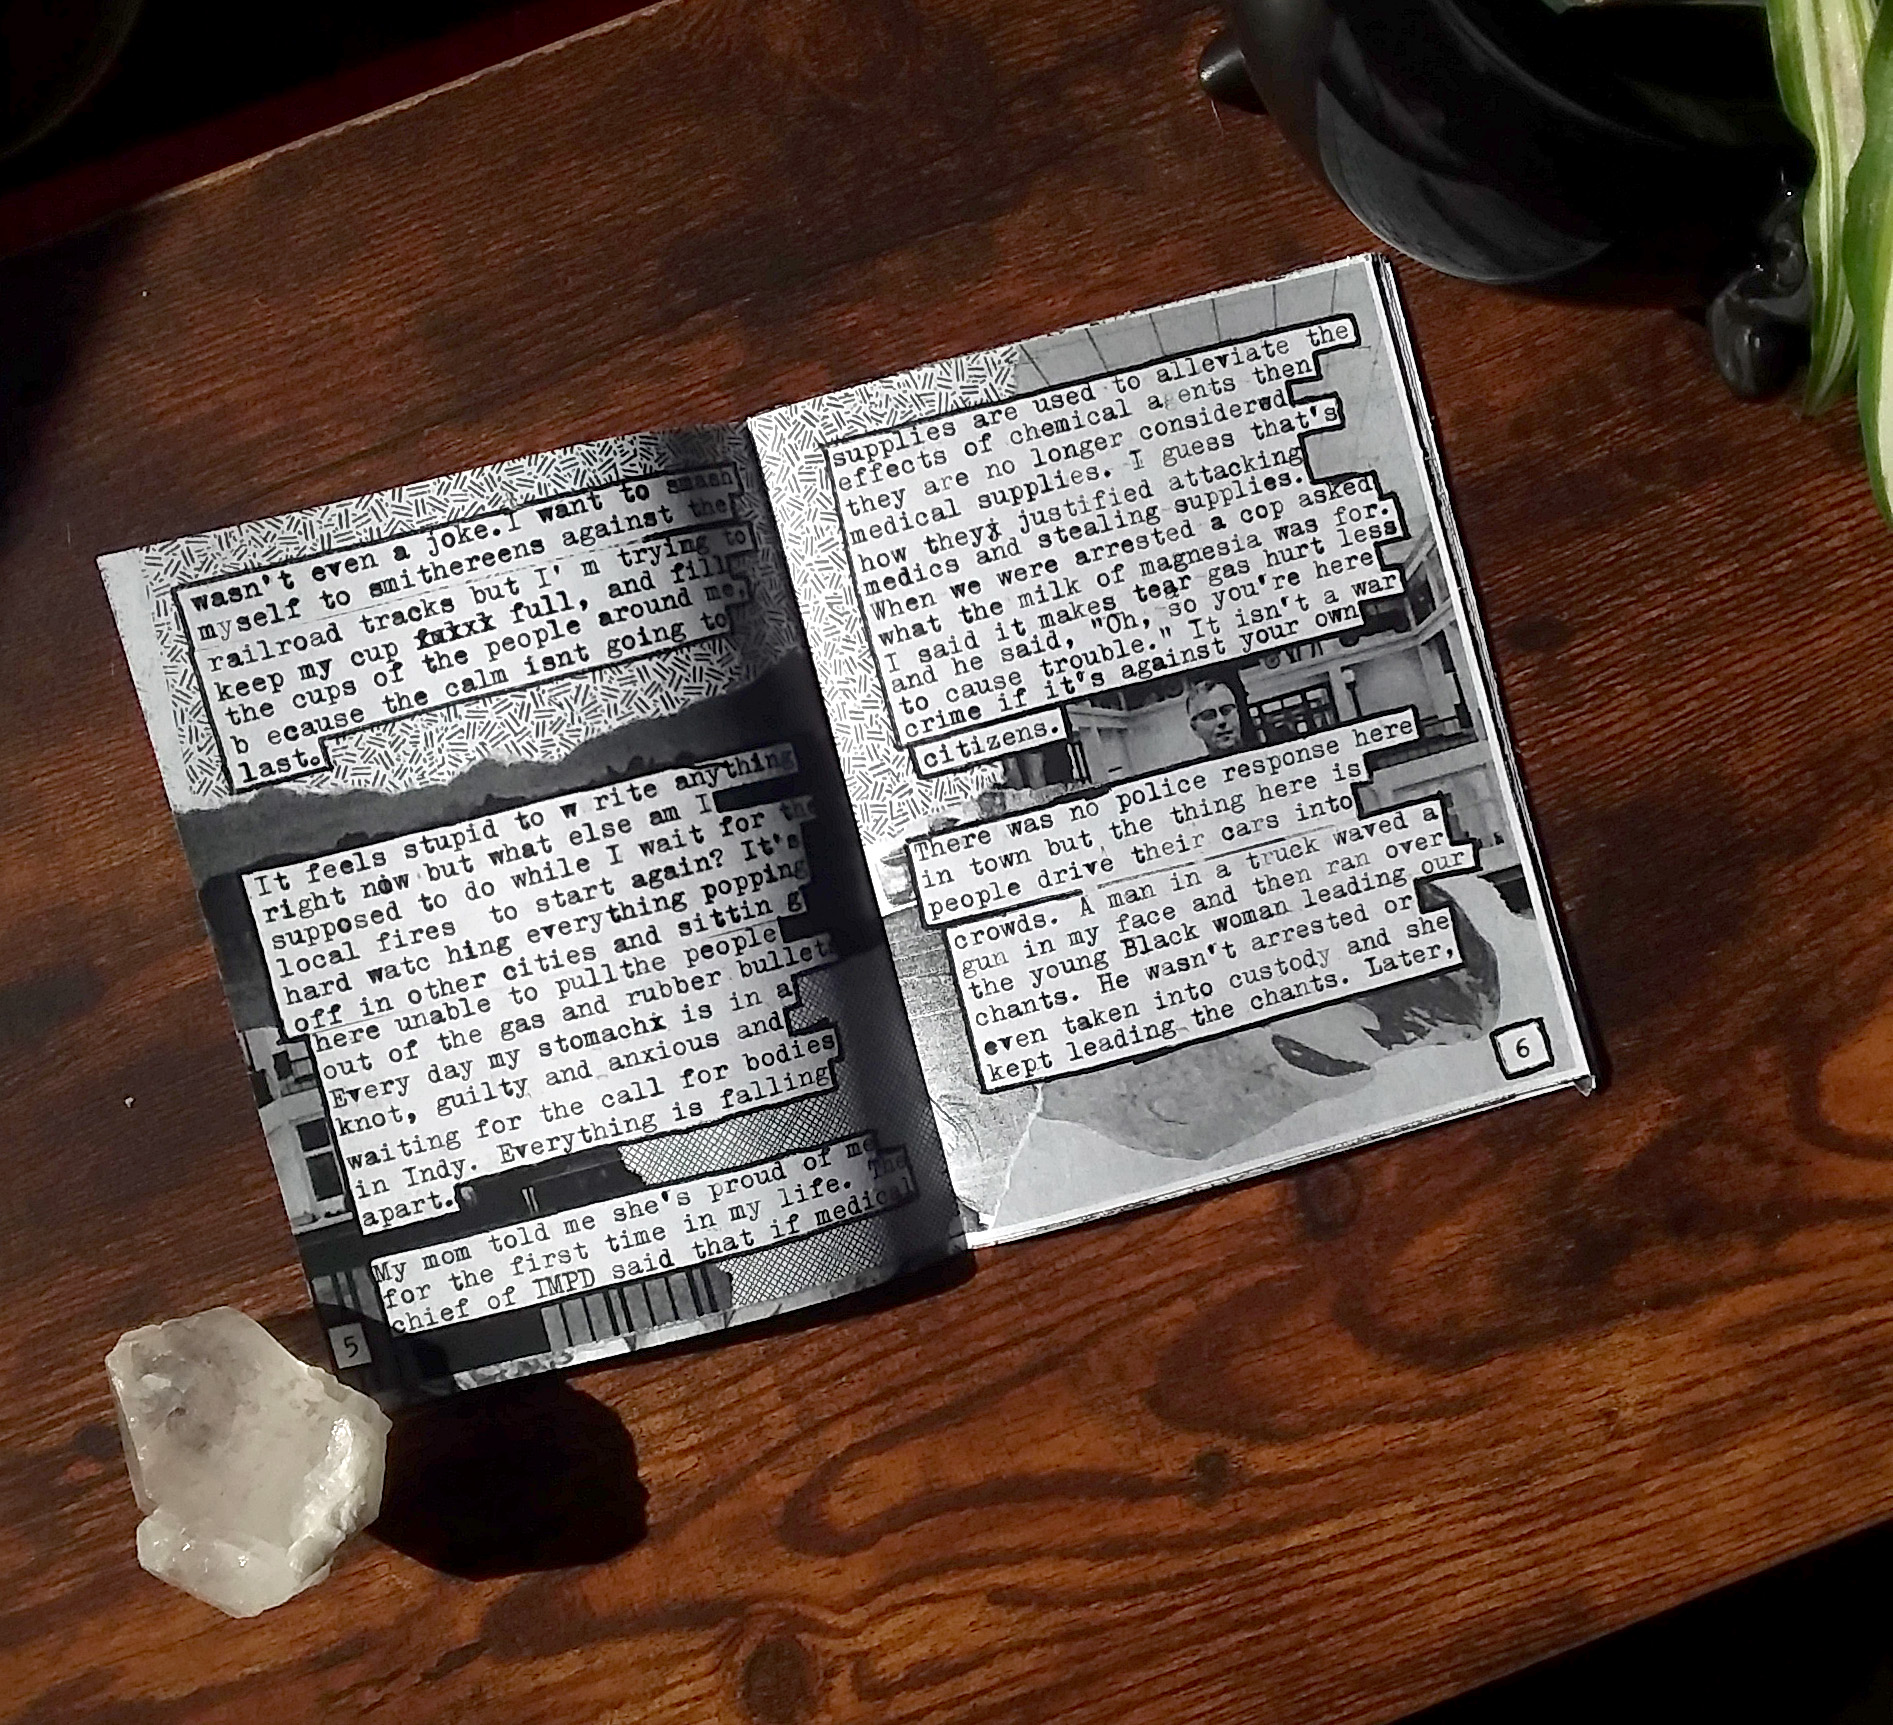 wasn't even a joke.I want to smash
myself to smithereens against the
railroad tracks but I' m trying to
keep my cup fukxx full, and fill
the cups of the people around me,
b ecause the calm isnt going to
last.
It feels stupid to w rite anything
right now but what else am I
supposed to do while I wait for th
local fires to start again? It's
hard watc hing everything popping
off in other cities and sittin g
here unable to pullthe people
out of the gas and rubber bullets
Every day my stomachx is in a
knot, guilty and anxious and
waiting for the call for bodies
in Indy. Everything is falling
apart.
My mom told me she's proud of me
for the first time in my life. The
chief of IMPD said that if medical
5
supplies are used to alleviate the
effects of chemical agents then
they are no longer considered
medical supplies. I guess that's
how theyx justified attacking
medics and stealing supplies.
When we were arrested a cop asked
what the milk of magnesia was for.
I said it makes tear gas hurt less
and he said, "Oh, so you're here
to cause trouble." It isn't a war
crime if it's against your own
citizens.
There was no police response here
in town but the thing here is
people drive their cars into
crowds. A man in a truck waved a
gun in my face and then ran over
the young Black woman leading our
chants. He wasn't arrested or
even taken into custody and she
kept leading the chants. Later,
6